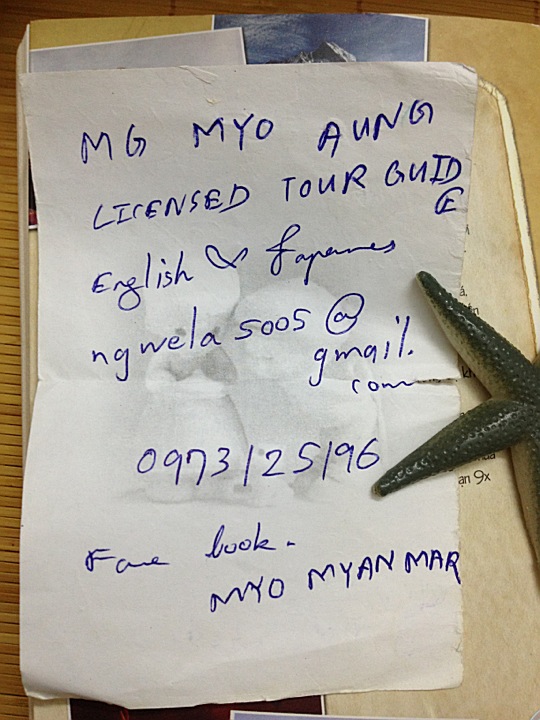 MG MYO AUNG
LICENSED TOUR GUID
E
English & Japanes
ngwela 5005 @
gmail.
com
0973125196
Face book.
MYO MYANMAR
ạn 9x